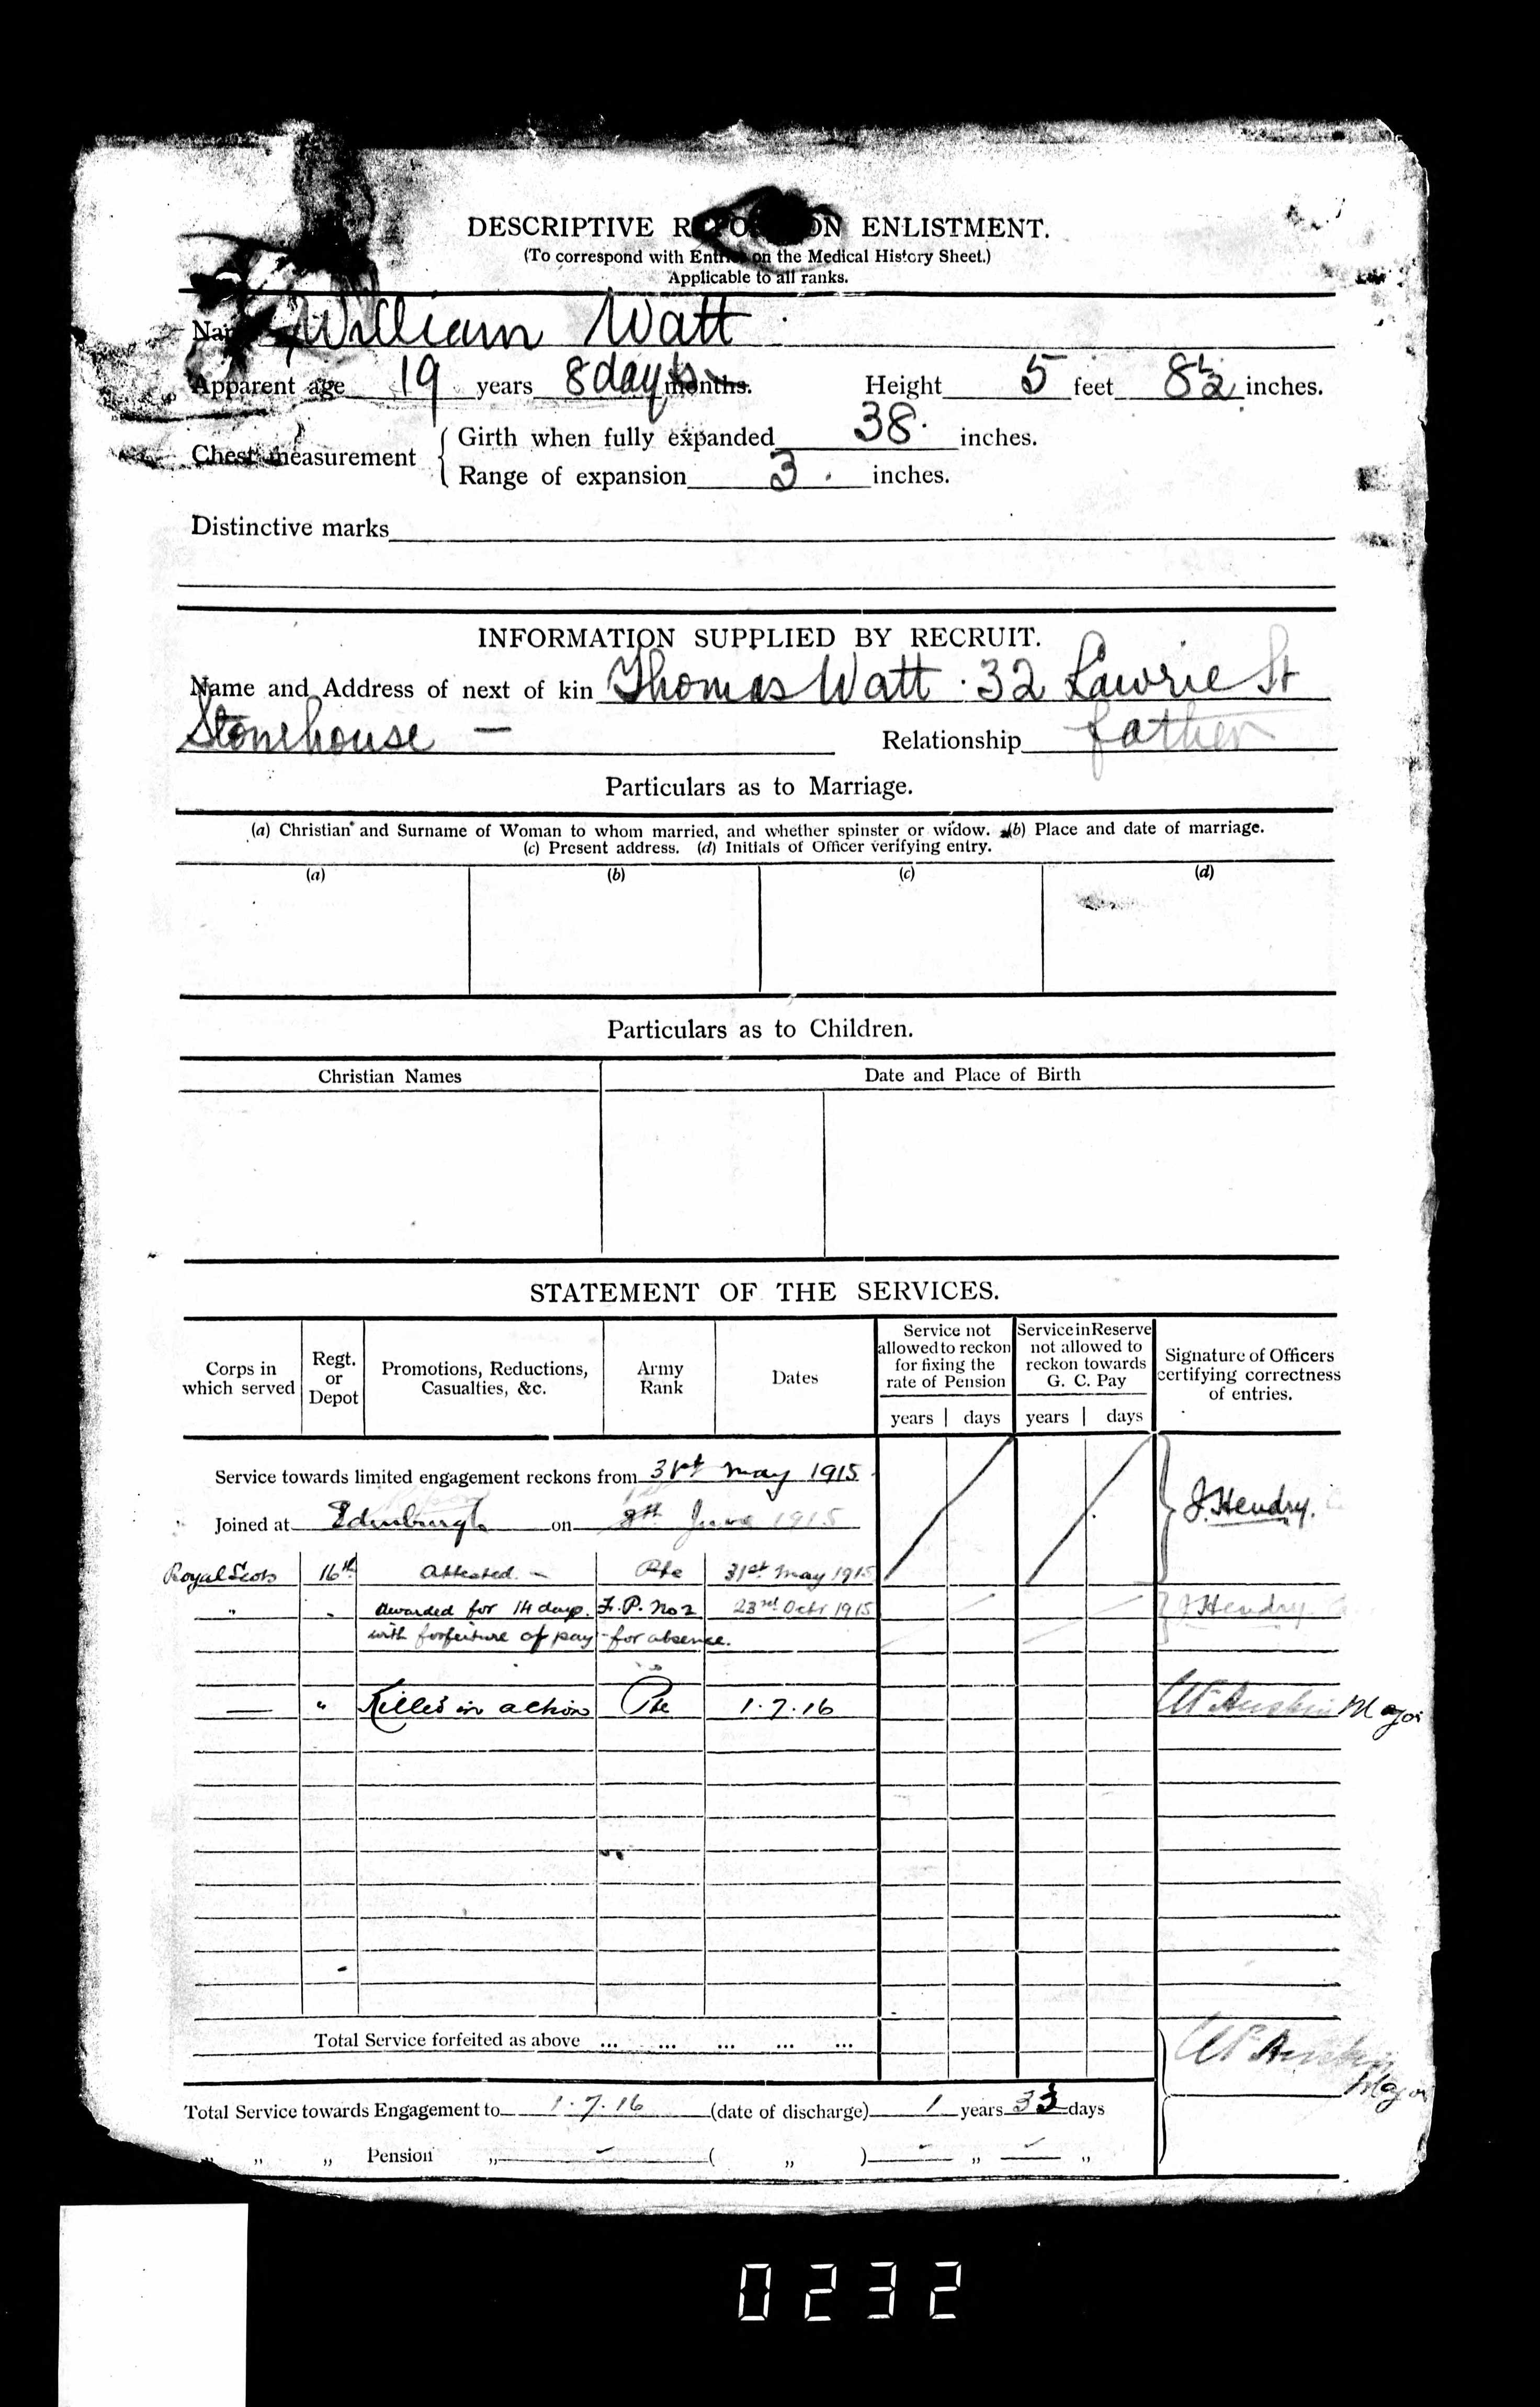 DESCRIPTIVE REPORT ON ENLISTMENT.
(To correspond with Entries on the Medical History Sheet.)
Applicable to all ranks.
Name William Watt
Apparent age 19 years 8 days months. Height 5 feet 8½ inches.
Chest measurement { Girth when fully expanded 38. inches.
Range of expansion 3. inches.
Distinctive marks
INFORMATION SUPPLIED BY RECRUIT.
Name and Address of next of kin Thomas Watt. 32 Lawrie St
Stonehouse — Relationship father
Particulars as to Marriage.
(a) Christian and Surname of Woman to whom married, and whether spinster or widow. (b) Place and date of marriage.
(c) Present address. (d) Initials of Officer verifying entry.
(a) (b) (c) (d)
Particulars as to Children.
Christian Names Date and Place of Birth
STATEMENT OF THE SERVICES.
Corps in which served
Regt. or Depot
Promotions, Reductions, Casualties, &c.
Army Rank
Dates
Service not allowed to reckon for fixing the rate of Pension
years days
Service in Reserve not allowed to reckon towards G. C. Pay
years days
Signature of Officers certifying correctness of entries.
Service towards limited engagement reckons from 31st May 1915
Joined at Edinburgh on 8th June 1915 J. Hendry.
Royal Scots 16th Attested. — Pte 31st May 1915
" " Awarded for 14 days. F. P. No 2 23rd Octr 1915 J Hendry.
with forfeiture of pay for absence.
— " Killed in action Pte 1.7.16 Major
Total Service forfeited as above ... ... ... ... ...
Major
Total Service towards Engagement to 1.7.16 (date of discharge) 1 years 33 days
" " " Pension " ( " ) " "
0232